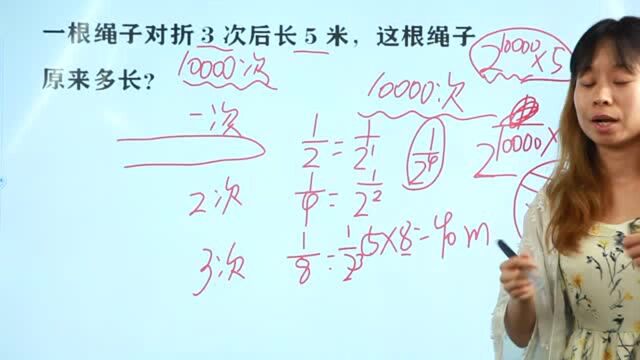 一根绳子对折 3 次后长 5 米，这根绳子
原来多长？
10000次
10000次
2^10000×5
一次
1/2 = 1/2^1
1/2^4
2^10000×
2次
1/4 = 1/2^2
3次
1/8 = 1/2^3
5×8=40m